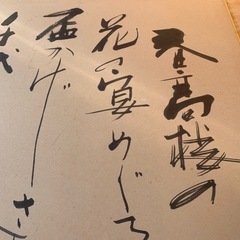 春高楼の
花の宴めぐる
盃かげさ
千代